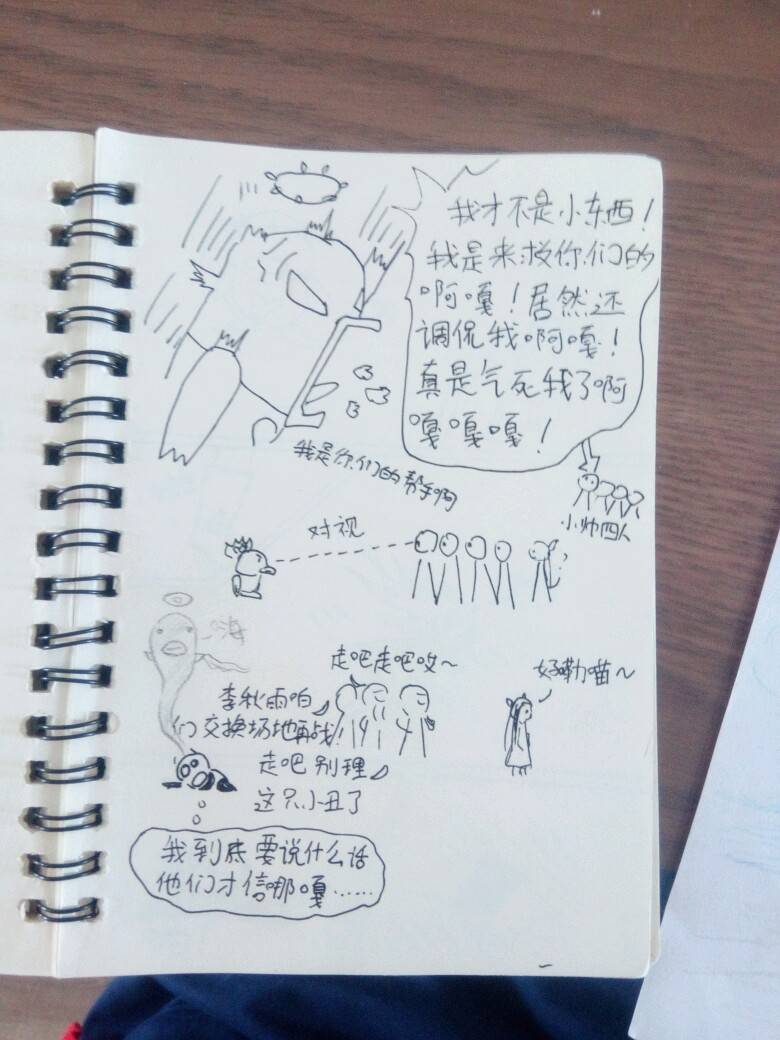 我才不是小东西！
我是来救你们的
啊嘎！居然还
调侃我啊嘎！
真是气死我了啊
嘎嘎嘎！
我是你们的帮手啊
小帅四人
对视
嗨
走吧走吧哎～
好嘞喵～
李秋雨咱
们交换场地再战！
走吧别理
这只小丑了
我到底要说什么话
他们才信哪嘎……